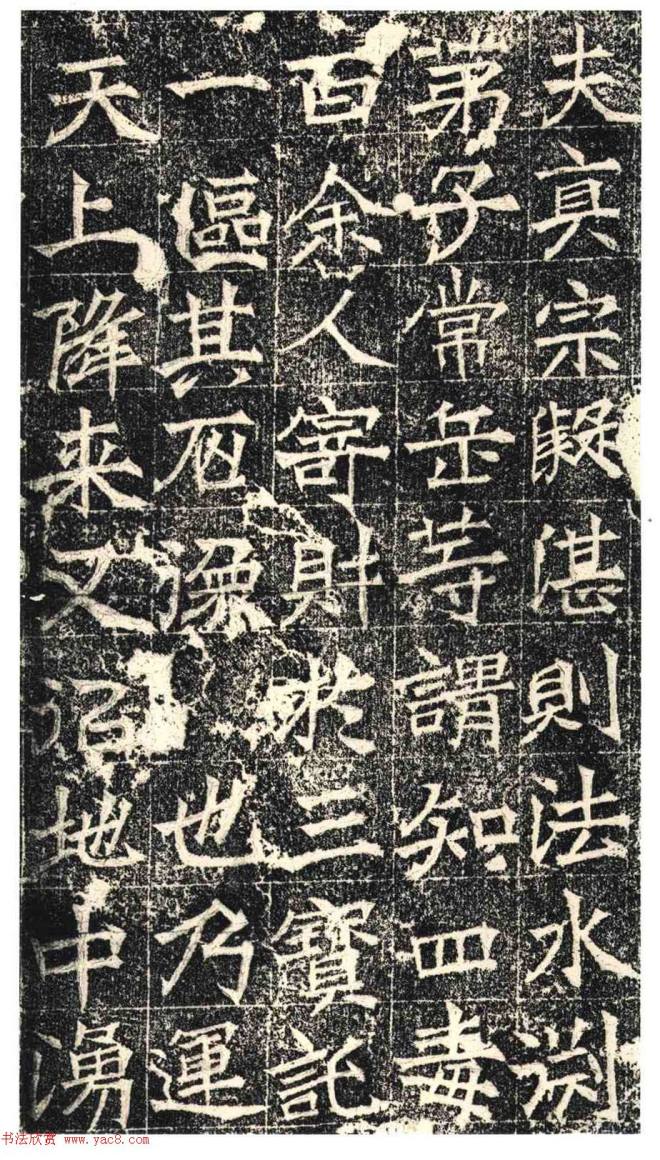 夫真宗凝湛則法水
苐子常岳等謂知四毒
百余人寄財於三寶託
一區其石像也乃運
天上降来又地中湧
书法欣赏 www.yac8.com